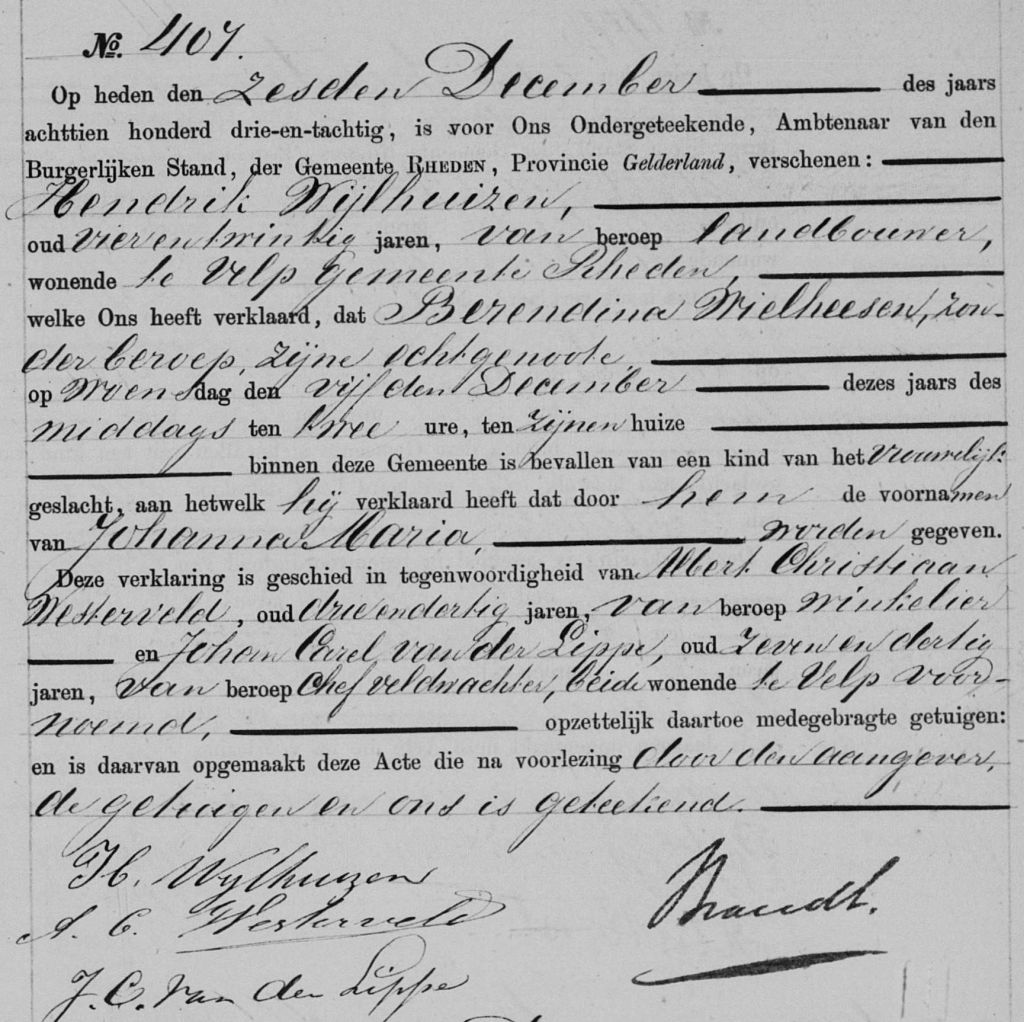 No. 407.
Op heden den zesden December des jaars
achttien honderd drie-en-tachtig, is voor Ons Ondergeteekende, Ambtenaar van den
Burgerlijken Stand, der Gemeente RHEDEN, Provincie Gelderland, verschenen:
Hendrik Wijlhuizen,
oud vier en twintig jaren, van beroep landbouwer,
wonende te Velp gemeente Rheden,
welke Ons heeft verklaard, dat Berendina Wielheesen, zon-
der beroep, zijne echtgenoote,
op Woensdag den vijfden December dezes jaars des
middags ten twee ure, ten zijnen huize
binnen deze Gemeente is bevallen van een kind van het vrouwelijk
geslacht, aan hetwelk hij verklaard heeft dat door hem de voornamen
van Johanna Maria, worden gegeven.
Deze verklaring is geschied in tegenwoordigheid van Albert Christiaan
Westerveld, oud drie en dertig jaren, van beroep winkelier
en Johan Carel van der Lippe, oud zeven en dertig
jaren, van beroep Chef veldwachter, beide wonende te Velp voor-
noemd, opzettelijk daartoe medegebragte getuigen:
en is daarvan opgemaakt deze Acte die na voorlezing door den aangever,
de getuigen en ons is geteekend.
H. Wylhuizen
A. C. Westerveld
Brandt.
J. C. van der Lippe